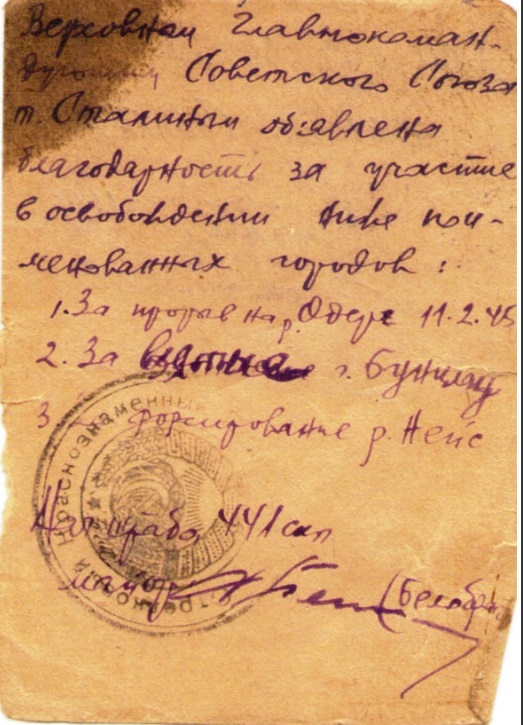 Верховным Главнокоман-
дующим Советского Союза
т. Сталиным объявлена
благодарность за участие
в освобождении ниже пои-
менованных городов:
1. За прорыв на р. Одере 11.2.45
2. За г. Бунцлау
3 форсирование р. Нейс
Краснознаменный
Нач штаба 441 сап
майор (Белобр